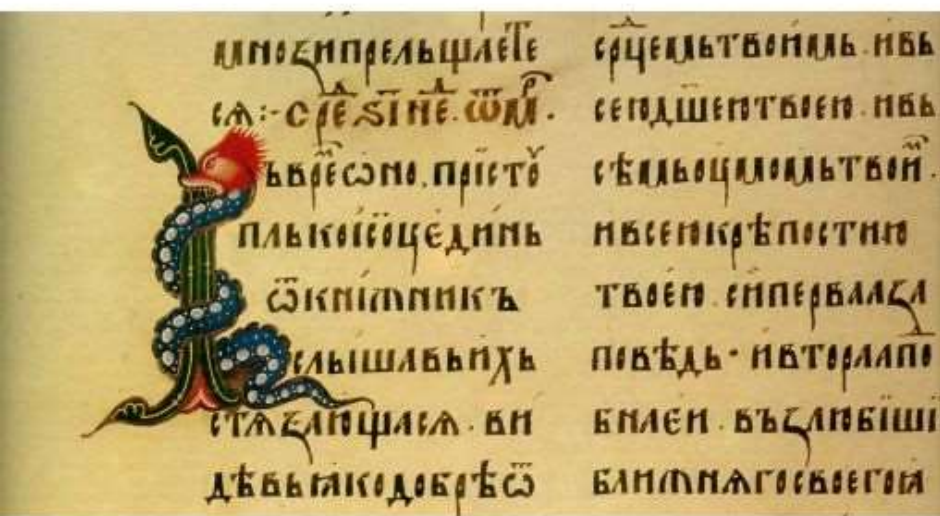 мноꙁи прельщаете
сѧ:· Срⷣе ѕ҃і неⷣ. ѿ мрⷦ.
ъ врⷨѣ ѻно. прїстоу
пль к҄ їс҄оу единь
ѿ кнїжникъ
слышавь ихь
стѧꙁающасѧ. ви
дѣвь ꙗко добрѣ ѿ
срⷣцемь твоимь. и въ
сею дш҃ею твоею. и въ
сѣмь оумомь твоиⷨ.
и всею крѣпостию
твоею. си първаа ꙁа
повѣдь· и втораа поⷣ
бна еи. въꙁлюбиши
ближнѧго своего ꙗ